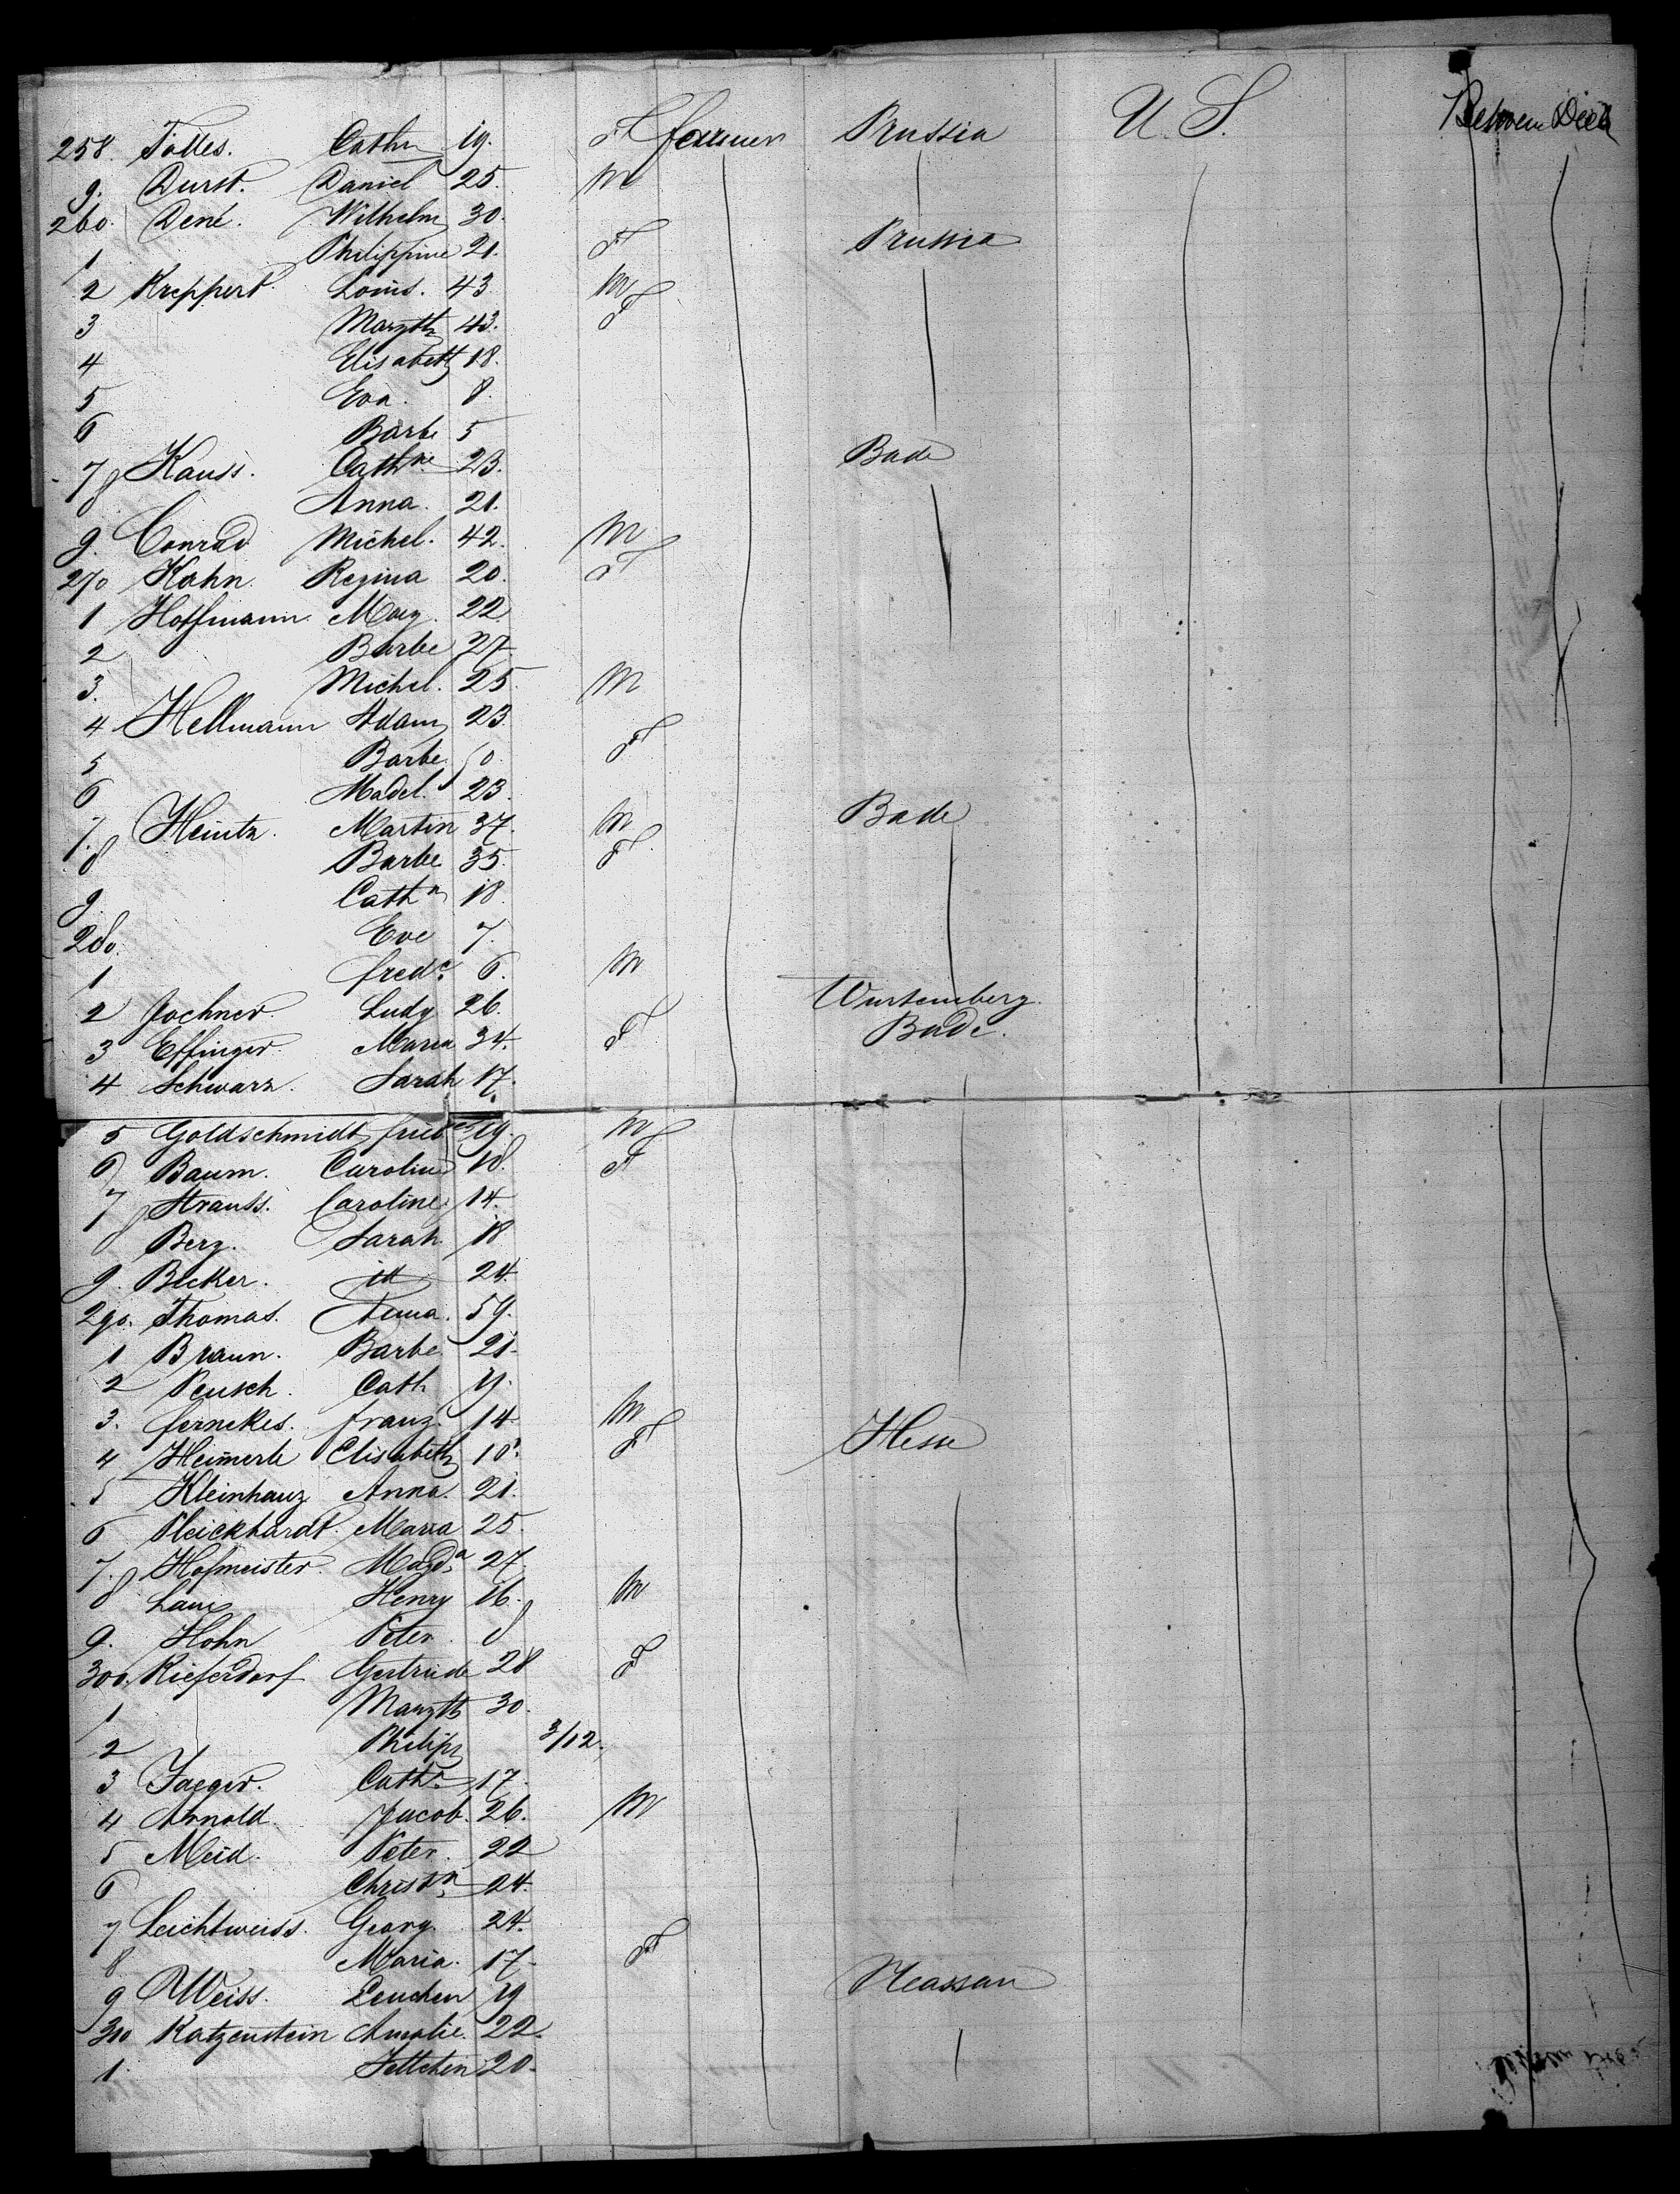 258. Tolles. Cathn 19. F farmer Prussia U. S. Between Deck
9. Durst. Daniel 25. M
260. Dené. Wilhelm 30.
1 Philippine 21. F Prussia
2 Kreppert. Louis. 43 M
3 Margth 43. F
4 Elisabeth 18.
5 Eva. 8.
6 Barbe 5
7 Kauss. Cathne 23. Bade
8 Anna. 21.
9. Conrad Michel. 42. M
270 Kahn. Regina 20. F
1 Hoffmann Marg. 22
2 Barbe 27.
3. Michel. 25. M
4 Hellmann Adam 23.
5 Barbe 50. F
6 Madel. 23.
7. Heintz. Martin 37. M Bade
8 Barbe 35. F
9. Cathn 18.
280. Eve 7.
1 fredc. 6. M
2 Jochner. Ludg 26. Wurtemberg.
3 Effinger. Maria 34. F Bade.
4 Schwarz. Sarah 17.
5 Goldschmidt 19. M
6 Baum. Caroline 18. F
7 Strauss. Caroline 14.
8 Berg. Sarah 18
9. Becker. id 24.
290. Thomas. 59.
1 Braun. Barbe 21.
2 Peusch. Cath 19.
3. fernekes. franz. 14 M
4 Heimerle Elisabeth 10. F Hesse
5 Kleinhanz Anna. 21.
6 Pleickhardt. Maria 25.
7. Hofmeister. Magda 27.
8 Laux Henry 16. M
9. Hohn Peter. 8
300. Kieferdorf Gertrude 28 F
1 Margth 30.
2 Philipp 3/12.
3 Jaeger. Cathr. 17.
4 Arnold. Jacob. 26. M
5 Meid. Peter. 22
6 Christn 24.
7 Leichtweiss. Georg. 24.
8 Maria. 17. F
9 Weiss. Lenchen 19 Neassau
310 Katzenstein Amalie. 22.
1. Jettchen 20.